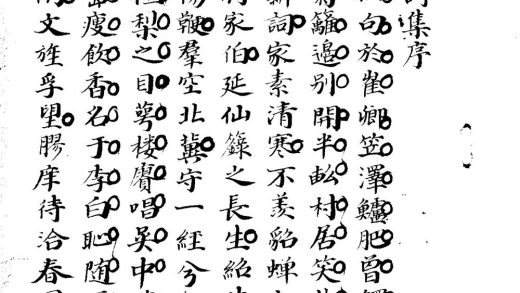 集序
句於崔卿笠澤鱸肥曾
籬邊別開半畝村居笑
詞家素清寒不羨貂蟬
家伯延仙籙之長生紹
鞭羣空北冀守一經兮
梨之目萼楼賡唱吳中
瘦飲香名于李白恥随
文旌孚望膠庠待洽春